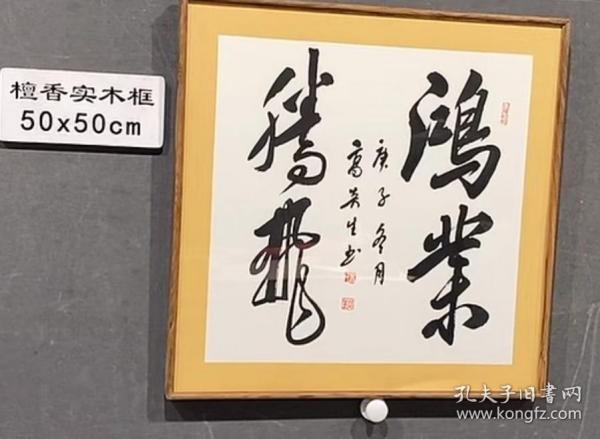 檀香实木框
50x50cm
鸿業
腾飛
庚子冬月
高生书
孔夫子旧書网
www.kongfz.com